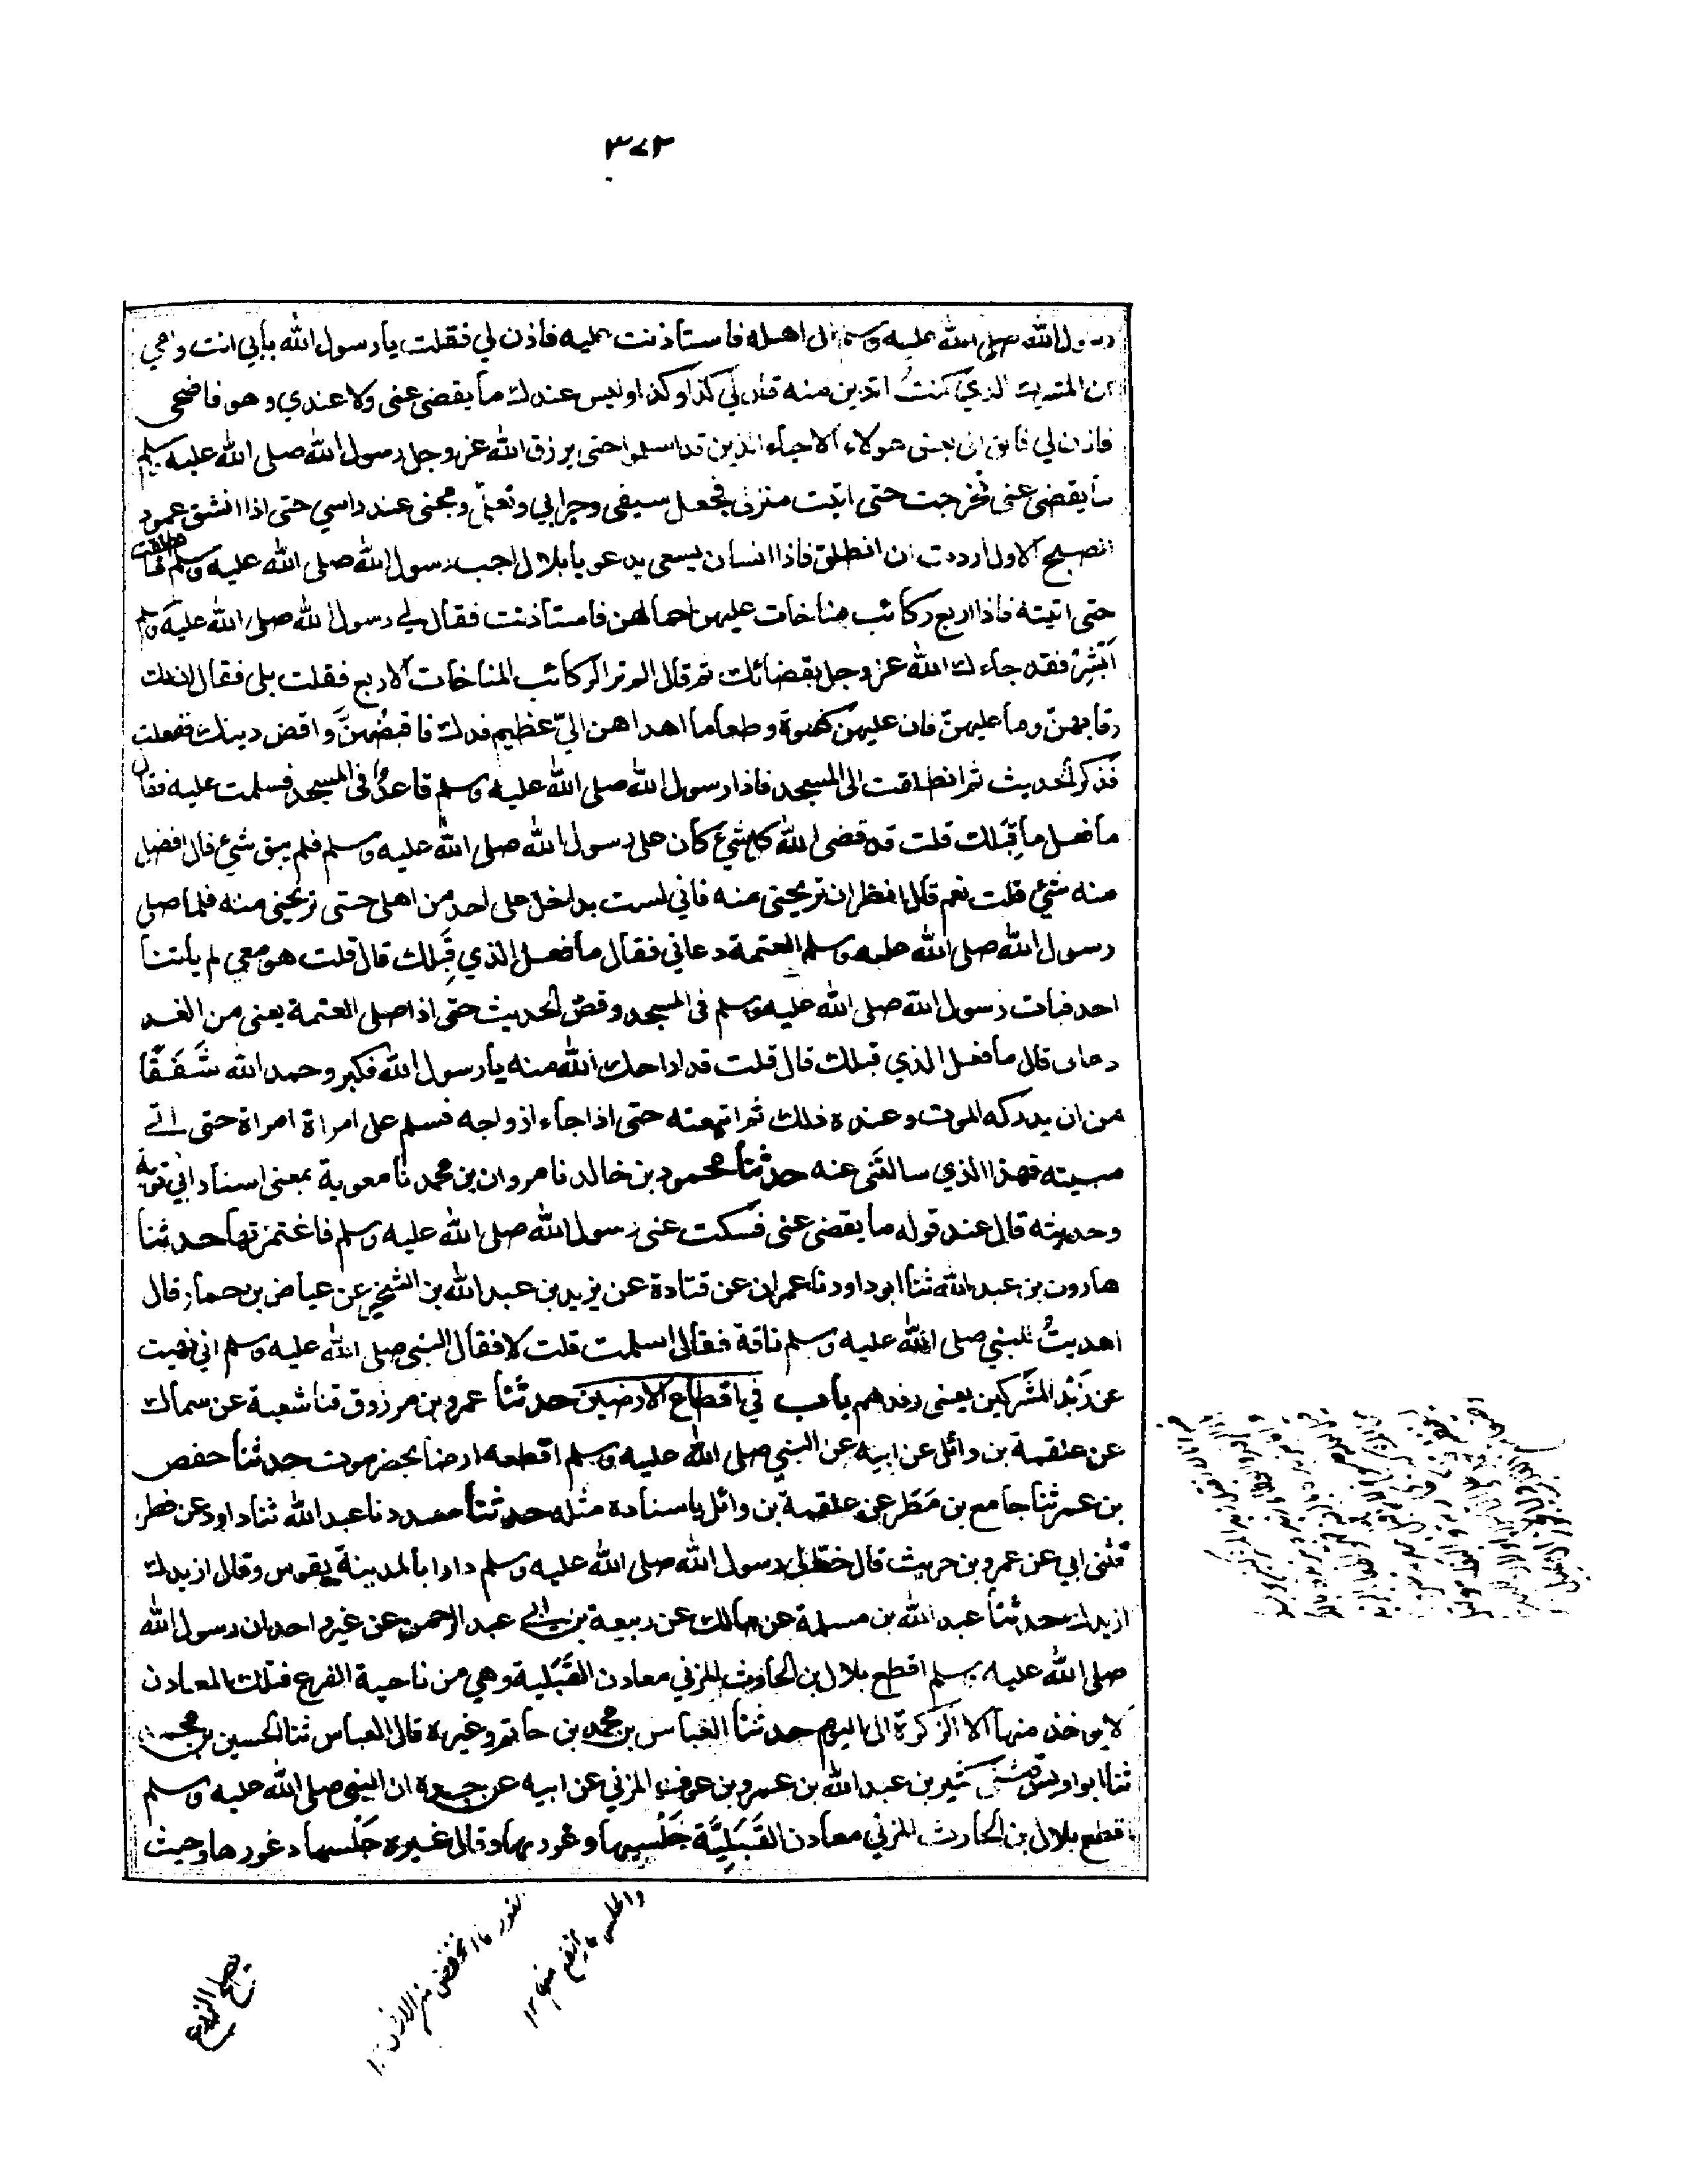 ٣٧٢
رسول الله صلى الله عليه وسلم الى اهله فاستأذنت عليه فاذن لي فقلت يا رسول الله بأبي انت وامي
ان المشرك الذي كنتُ اتدين منه قال لي كذا وكذا وليس عندك ما يقضى عنى ولا عندي وهو فاضحى
فاذن لي فابق الى بعض هولاء الاحياء الذين قد اسلموا حتى يرزق الله عز وجل رسول الله صلى الله عليه وسلم
ما يقضى عنى فخرجت حتى اتيت منزلى فجعل سيفى وجرابي ونعلى ومجنى عند راسي حتى اذا انشق عمود
الصبح الاول اردت ان انطلق فاذا انسان يسعى يدعو يا بلال اجب رسول الله صلى الله عليه وسلم فانطلقت
حتى اتيته فاذا اربع ركائب مناخات عليهن احمالهن فاستأذنت فقال لي رسول الله صلى الله عليه وسلم
اَبْشِرْ فقد جاءك الله عز وجل بقضائك ثم قال الم تر الركائب المناخات الاربع فقلت بلى فقال ان لك
رقابهنّ وما عليهنّ فان عليهنّ كسوة وطعاما اهداهن اليّ عظيم فدك فاقبضهنَّ واقض دينك ففعلت
فذكر الحديث ثم انطلقت الى المسجد فاذا رسول الله صلى الله عليه وسلم قاعدٌ فى المسجد فسلمت عليه فقال
ما فعل ما قِبَلك قلت قد قضى الله كل شيء كان على رسول الله صلى الله عليه وسلم فلم يبق شيء قال افضل
منه شيء قلت نعم قال انظر ان تريحنى منه فاني لست بداخل على احد من اهلى حتى تريحنى منه فلما صلى
رسول الله صلى الله عليه وسلم العتمة دعاني فقال ما فعل الذي قِبَلك قال قلت هو معي لم يأتنا
احد فبات رسول الله صلى الله عليه وسلم فى المسجد وقصّ الحديث حتى اذا صلى العتمة يعنى من الغد
دعانى قال ما فعل الذي قبلك قال قلت قد اراحك الله منه يا رسول الله فكبر وحمد الله شَفَقًا
من ان يدركه الموت وعنده ذلك ثم اتبعته حتى اذا جاء ازواجه فسلم على امراة امراة حتى اتى
مبيته فهذا الذي سالتَنى عنه حدثنا محمود بن خالد نا مروان بن محمد نا معوية بمعنى اسناد ابي توبة
وحديثه قال عند قوله ما يقضى عنى فسكت عنى رسول الله صلى الله عليه وسلم فاغتمزتها حدثنا
هارون بن عبد الله ثنا ابو داود نا عمران عن قتادة عن يزيد بن عبد الله بن الشخير عن عياض بن حمار قال
اهديتُ للنبي صلى الله عليه وسلم ناقة فقال اسلمت قلت لا فقال النبى صلى الله عليه وسلم اني نهيت
عن زَبْد المشركين يعنى رفدهم باب في اقطاع الارضين حدثنا عمرو بن مرزوق قنا شعبة عن سماك
عن علقمة بن وائل عن ابيه عن النبي صلى الله عليه وسلم اقطعه ارضا بحضرموت حدثنا حفص
بن عمر ثنا جامع بن مَطَر عن علقمة بن وائل باسناده مثله حدثنا مسدد نا عبد الله ثنا داود عن فطر
قثنى ابي عن عمرو بن حريث قال خطّ لي رسول الله صلى الله عليه وسلم دارا بالمدينة بقوس وقال ازيدك
ازيدك حدثنا عبد الله بن مسلمة عن مالك عن ربيعة بن ابي عبد الرحمن عن غير واحد ان رسول الله
صلى الله عليه وسلم اقطع بلال بن الحارث المزني معادن القَبَلية وهي من ناحية الفرع فتلك المعادن
لا يوخذ منها الا الزكوة الى اليوم حدثنا العباس بن محمد بن حاتم وغيره قال العباس ثنا الحسين بن محمد
ثنا ابو اويس قثنى كثير بن عبد الله بن عمرو بن عوف المزني عن ابيه عن جده ان النبى صلى الله عليه وسلم
اقطع بلال بن الحارث المزني معادن القَبَلِيَّة جَلْسِيها وغوريها وقال غيره جَلْسها وغورها وحيث
والجلس ما ارتفع منها ١٢
الغور ما انخفض من الارض ١٢
يصلح الزرع